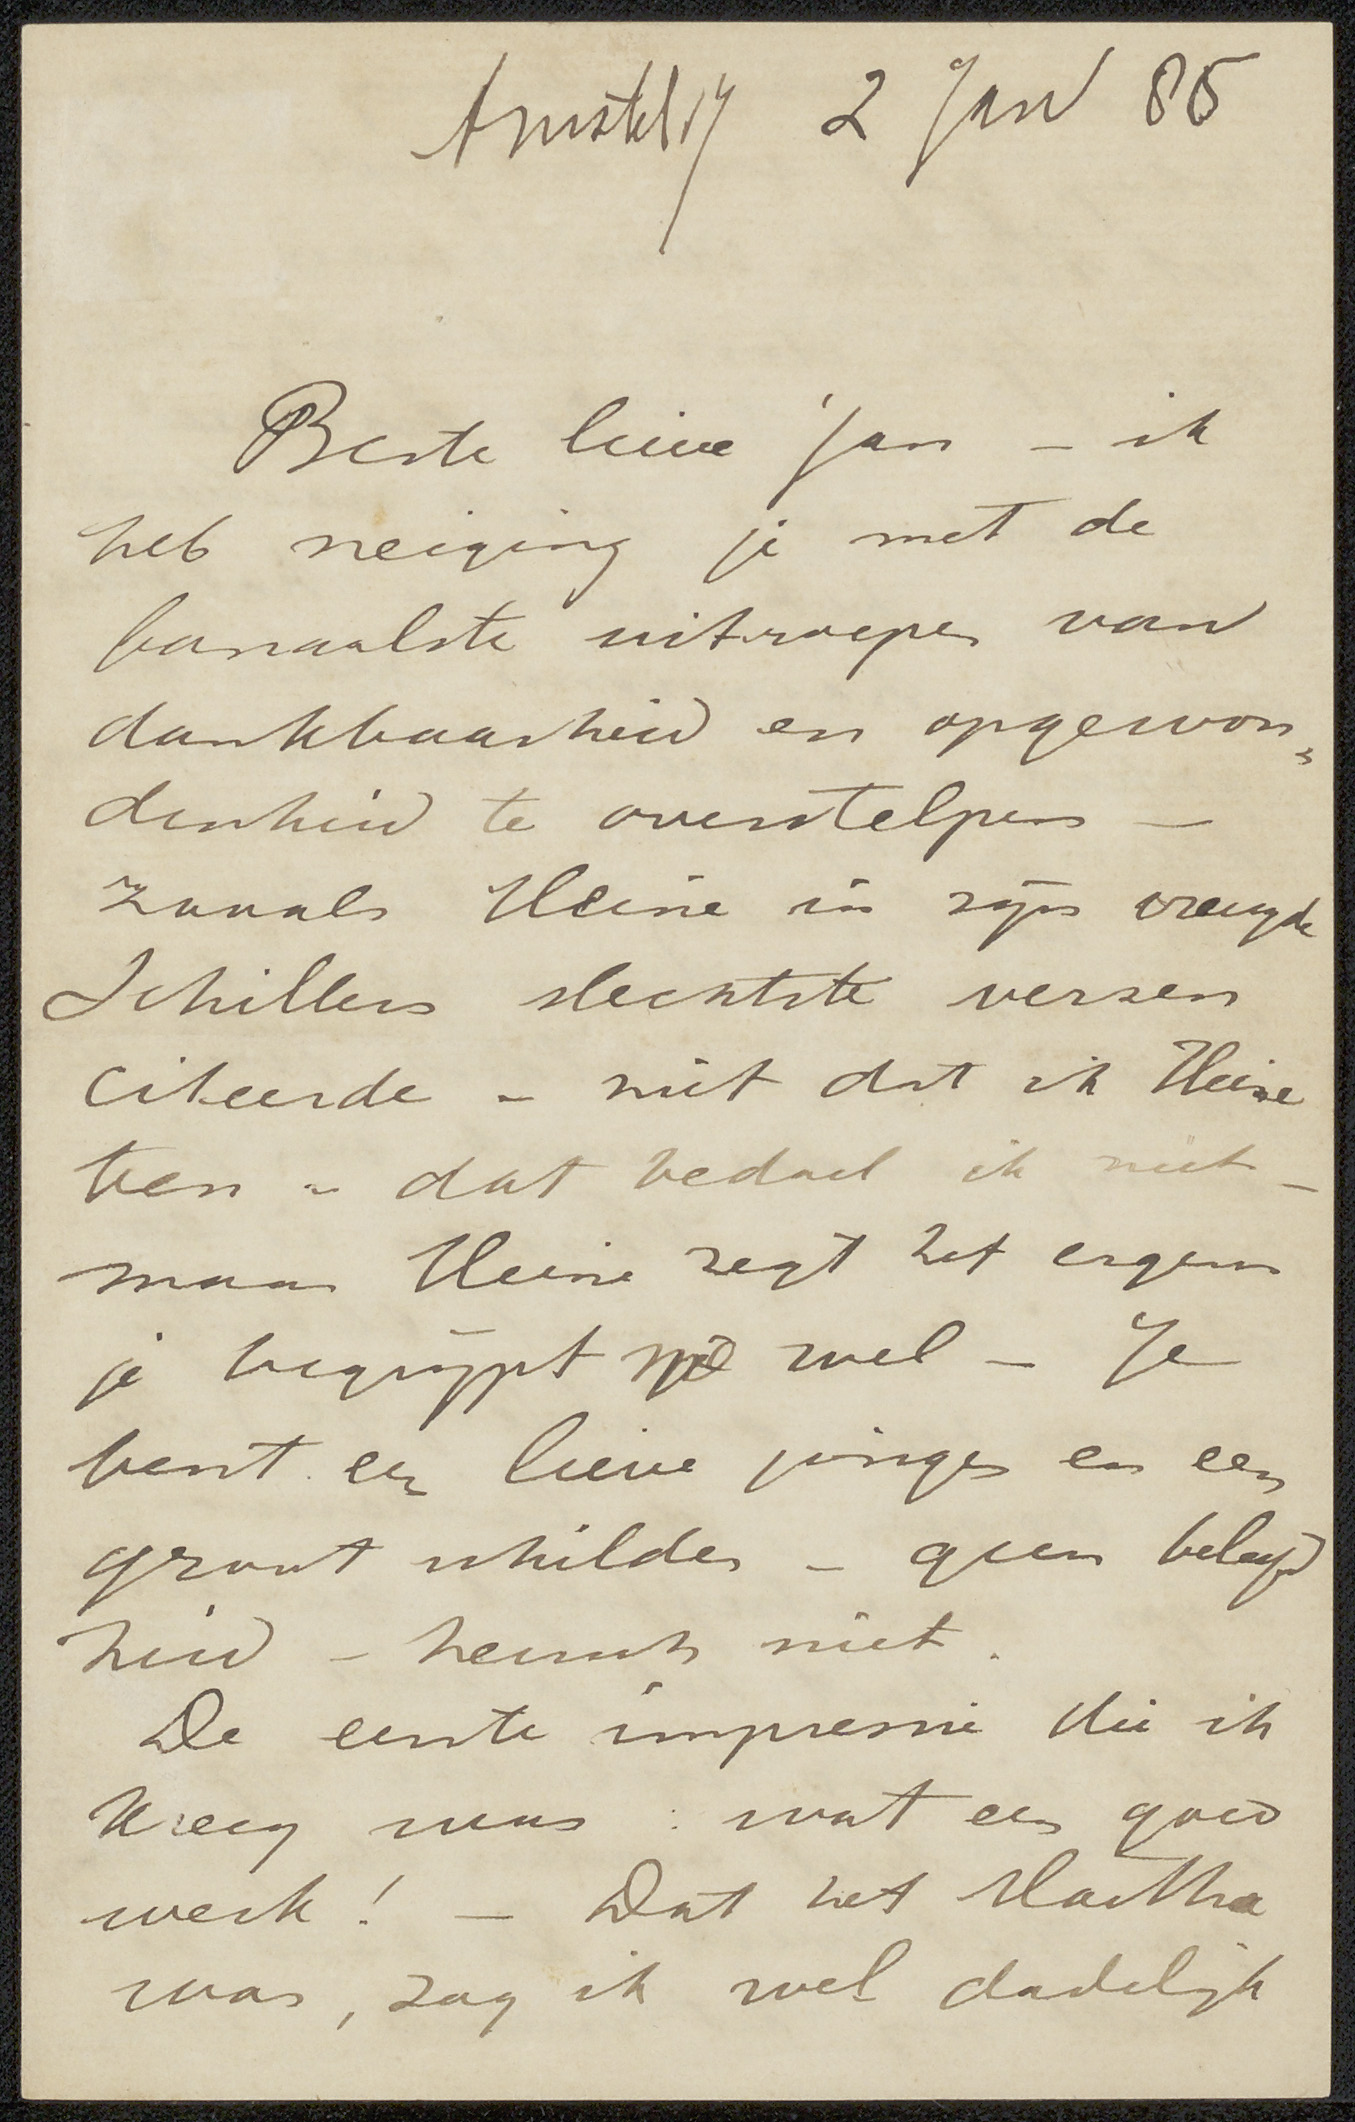 Amstel 2 Jan 86
Beste lieve Jan – ik
heb neiging je met de
banaalste uitroepen van
dankbaarheid en opgewon„
denheid te overstelpen –
zooals Heine in zijn vreugde
Schillers slechtste verzen
citeerde – niet dat ik Heine
ben – dat bedoel ik niet –
maar Heine zegt het ergens
je begrijpt wel – Je
bent een lieve jongen en een
groot schilder – geen beleefd
heid – heusch niet.
De eerste impressie die ik
kreeg was : wat een goed
werk! – Dat het Martha
was, zag ik wel dadelijk